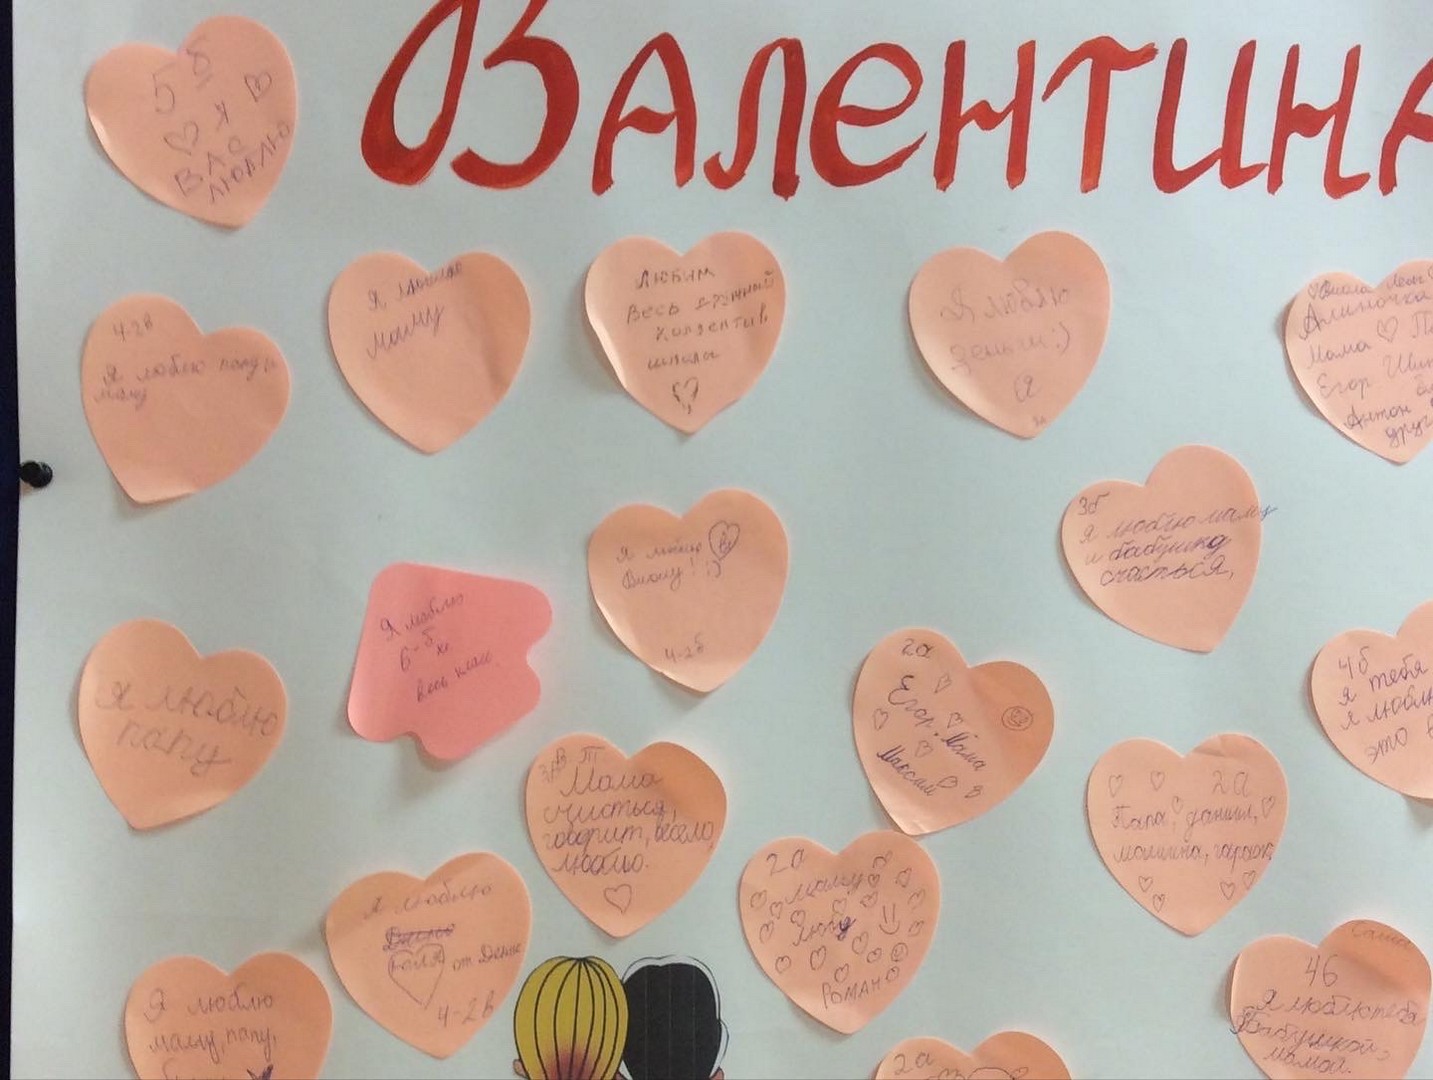 ВАЛЕНТИНА
5 б
Я
ВАС
ЛЮБЛЮ
4-2в
Я люблю папу и
маму
Я люблю
маму
Любим
весь дружный
коллектив
школы
Я люблю
деньги:)
Я
Алиночка
Мама
Егор
Антон
друг
3б
Я люблю маму
и бабушка
счасться,
Я люблю
4-2б
Я люблю
6-б
весь клас
Я люблю
папу
2а
Егор, Мама
Максам
4б
я тебя
я люблю
это
Мама
счисться,
говорит, весело,
люблю.
2а
Папа, даниил,
машина, гараж
2а
маму
РОМАН
Я люблю
от Дениса
4-2в
Я люблю
маму, папу,
Саша
4б
Я люблю тебя
бабушкой,
мамой.
2а